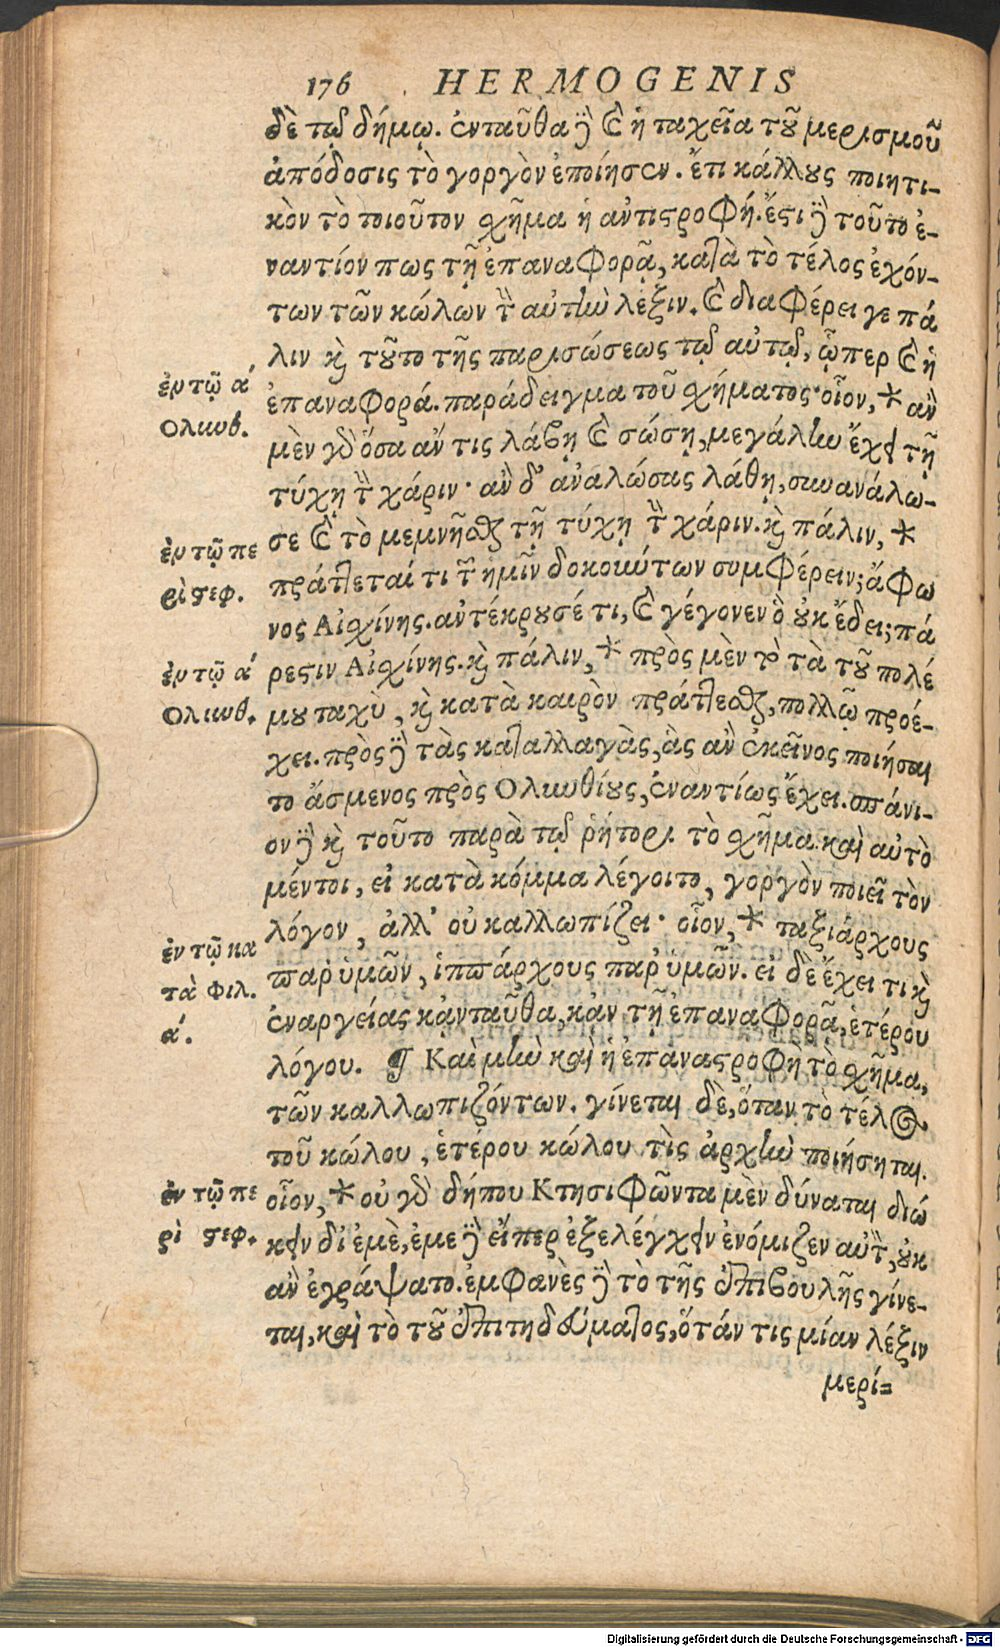 176 HERMOGENIS
δὲ τῷ δήμῳ. ἐνταῦθα δὲ καὶ ἡ ταχεῖα τοῦ μερισμοῦ
ἀπόδοσις τὸ γοργὸν ἐποίησεν. ἔτι κάλλους ποιητι-
κὸν τὸ τοιοῦτον χῆμα ἡ ἀντιστροφή. ἔστι δὲ τοῦτο ἐ-
ναντίον πως τῇ ἐπαναφορᾷ, κατὰ τὸ τέλος ἐχόν-
των τῶν κώλων τὴν αὐτὴν λέξιν. καὶ διαφέρει γε πά
λιν καὶ τοῦτο τῆς παρισώσεως τῷ αὐτῷ, ᾧπερ καὶ ἡ
ἐπαναφορά. παράδειγμα τοῦ χήματος· οἷον, * ἂν
μὲν γὰρ ὅσα ἄν τις λάβῃ καὶ σώσῃ, μεγάλην ἔχει τῇ
τύχῃ τὴν χάριν· ἂν δ' ἀναλώσας λάθῃ, συνανάλω-
σε καὶ τὸ μεμνῆσθαι τῇ τύχῃ τὴν χάριν. καὶ πάλιν, *
πράττεταί τι τῶν ἡμῖν δοκούντων συμφέρειν; ἄφω
νος Αἰχίνης. ἀντέκρουσέ τι, καὶ γέγονεν ὃ οὐκ ἔδει; πά
ρεστιν Αἰχίνης. καὶ πάλιν, * πρὸς μὲν γὰρ τὰ τοῦ πολέ
μου ταχὺ, καὶ κατὰ καιρὸν πράττεσθαι, πολλῷ προέ-
χει. πρὸς δὲ τὰς καταλλαγὰς, ἃς ἂν ἐκεῖνος ποιήσαι
το ἄσμενος πρὸς Ολυνθίους, ἐναντίως ἔχει. σπάνι-
ον δὲ καὶ τοῦτο παρὰ τῷ ῥήτορι. τὸ χῆμα. καὶ αὐτὸ
μέντοι, εἰ κατὰ κόμμα λέγοιτο, γοργὸν ποιεῖ τὸν
λόγον, ἀλλ' οὐ καλλωπίζει· οἷον, * ταξιάρχους
παρ' ὑμῶν, ἱππάρχους παρ' ὑμῶν. εἰ δὲ ἔχει τι καὶ
ἐναργείας κἀνταῦθα, κἀν τῇ ἐπαναφορᾷ, ἑτέρου
λόγου. ¶ Καὶ μὴν καὶ ἡ ἐπαναστροφὴ τὸ χῆμα,
τῶν καλλωπιζόντων. γίνεται δὲ, ὅταν τὸ τέλος
τοῦ κώλου, ἑτέρου κώλου τὶς ἀρχὴν ποιήσηται.
οἷον, * οὐ γὰρ δήπου Κτησιφῶντα μὲν δύναται διώ
κειν δι' ἐμὲ, ἐμὲ δὲ εἴπερ ἐξελέγχειν ἐνόμιζεν αὐτὸν, οὐκ
ἂν ἐγράψατο. ἐμφανὲς δὲ τὸ τῆς ἐπιβουλῆς γίνε-
ται, καὶ τὸ τοῦ ἐπιτηδεύματος, ὅτάν τις μίαν λέξιν
μερί=
ἐν τῷ α'
Ολυνθ.
ἐν τῷ πε
ρὶ στεφ.
ἐν τῷ α'
Ολυνθ.
ἐν τῷ κα
τὰ Φιλ.
α'.
ἐν τῷ πε
ρὶ στεφ.
Digitalisierung gefördert durch die Deutsche Forschungsgemeinschaft - DFG